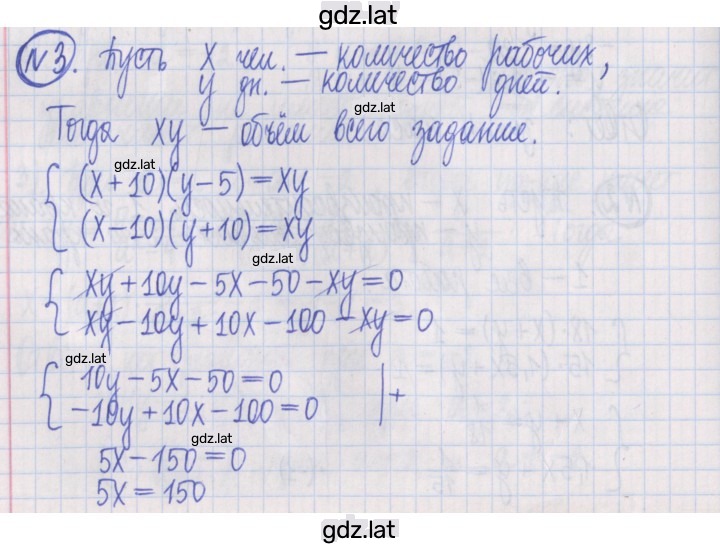 gdz.lat
№3. Пусть x чел. — количество рабочих,
y дн. — количество дней.
gdz.lat
Тогда xy — объём всего задание.
gdz.lat
(x+10)(y-5)=xy
(x-10)(y+10)=xy
gdz.lat
xy+10y-5x-50-xy=0
xy-10y+10x-100-xy=0
gdz.lat
10y-5x-50=0
-10y+10x-100=0 | +
gdz.lat
5x-150=0
5x=150
gdz.lat